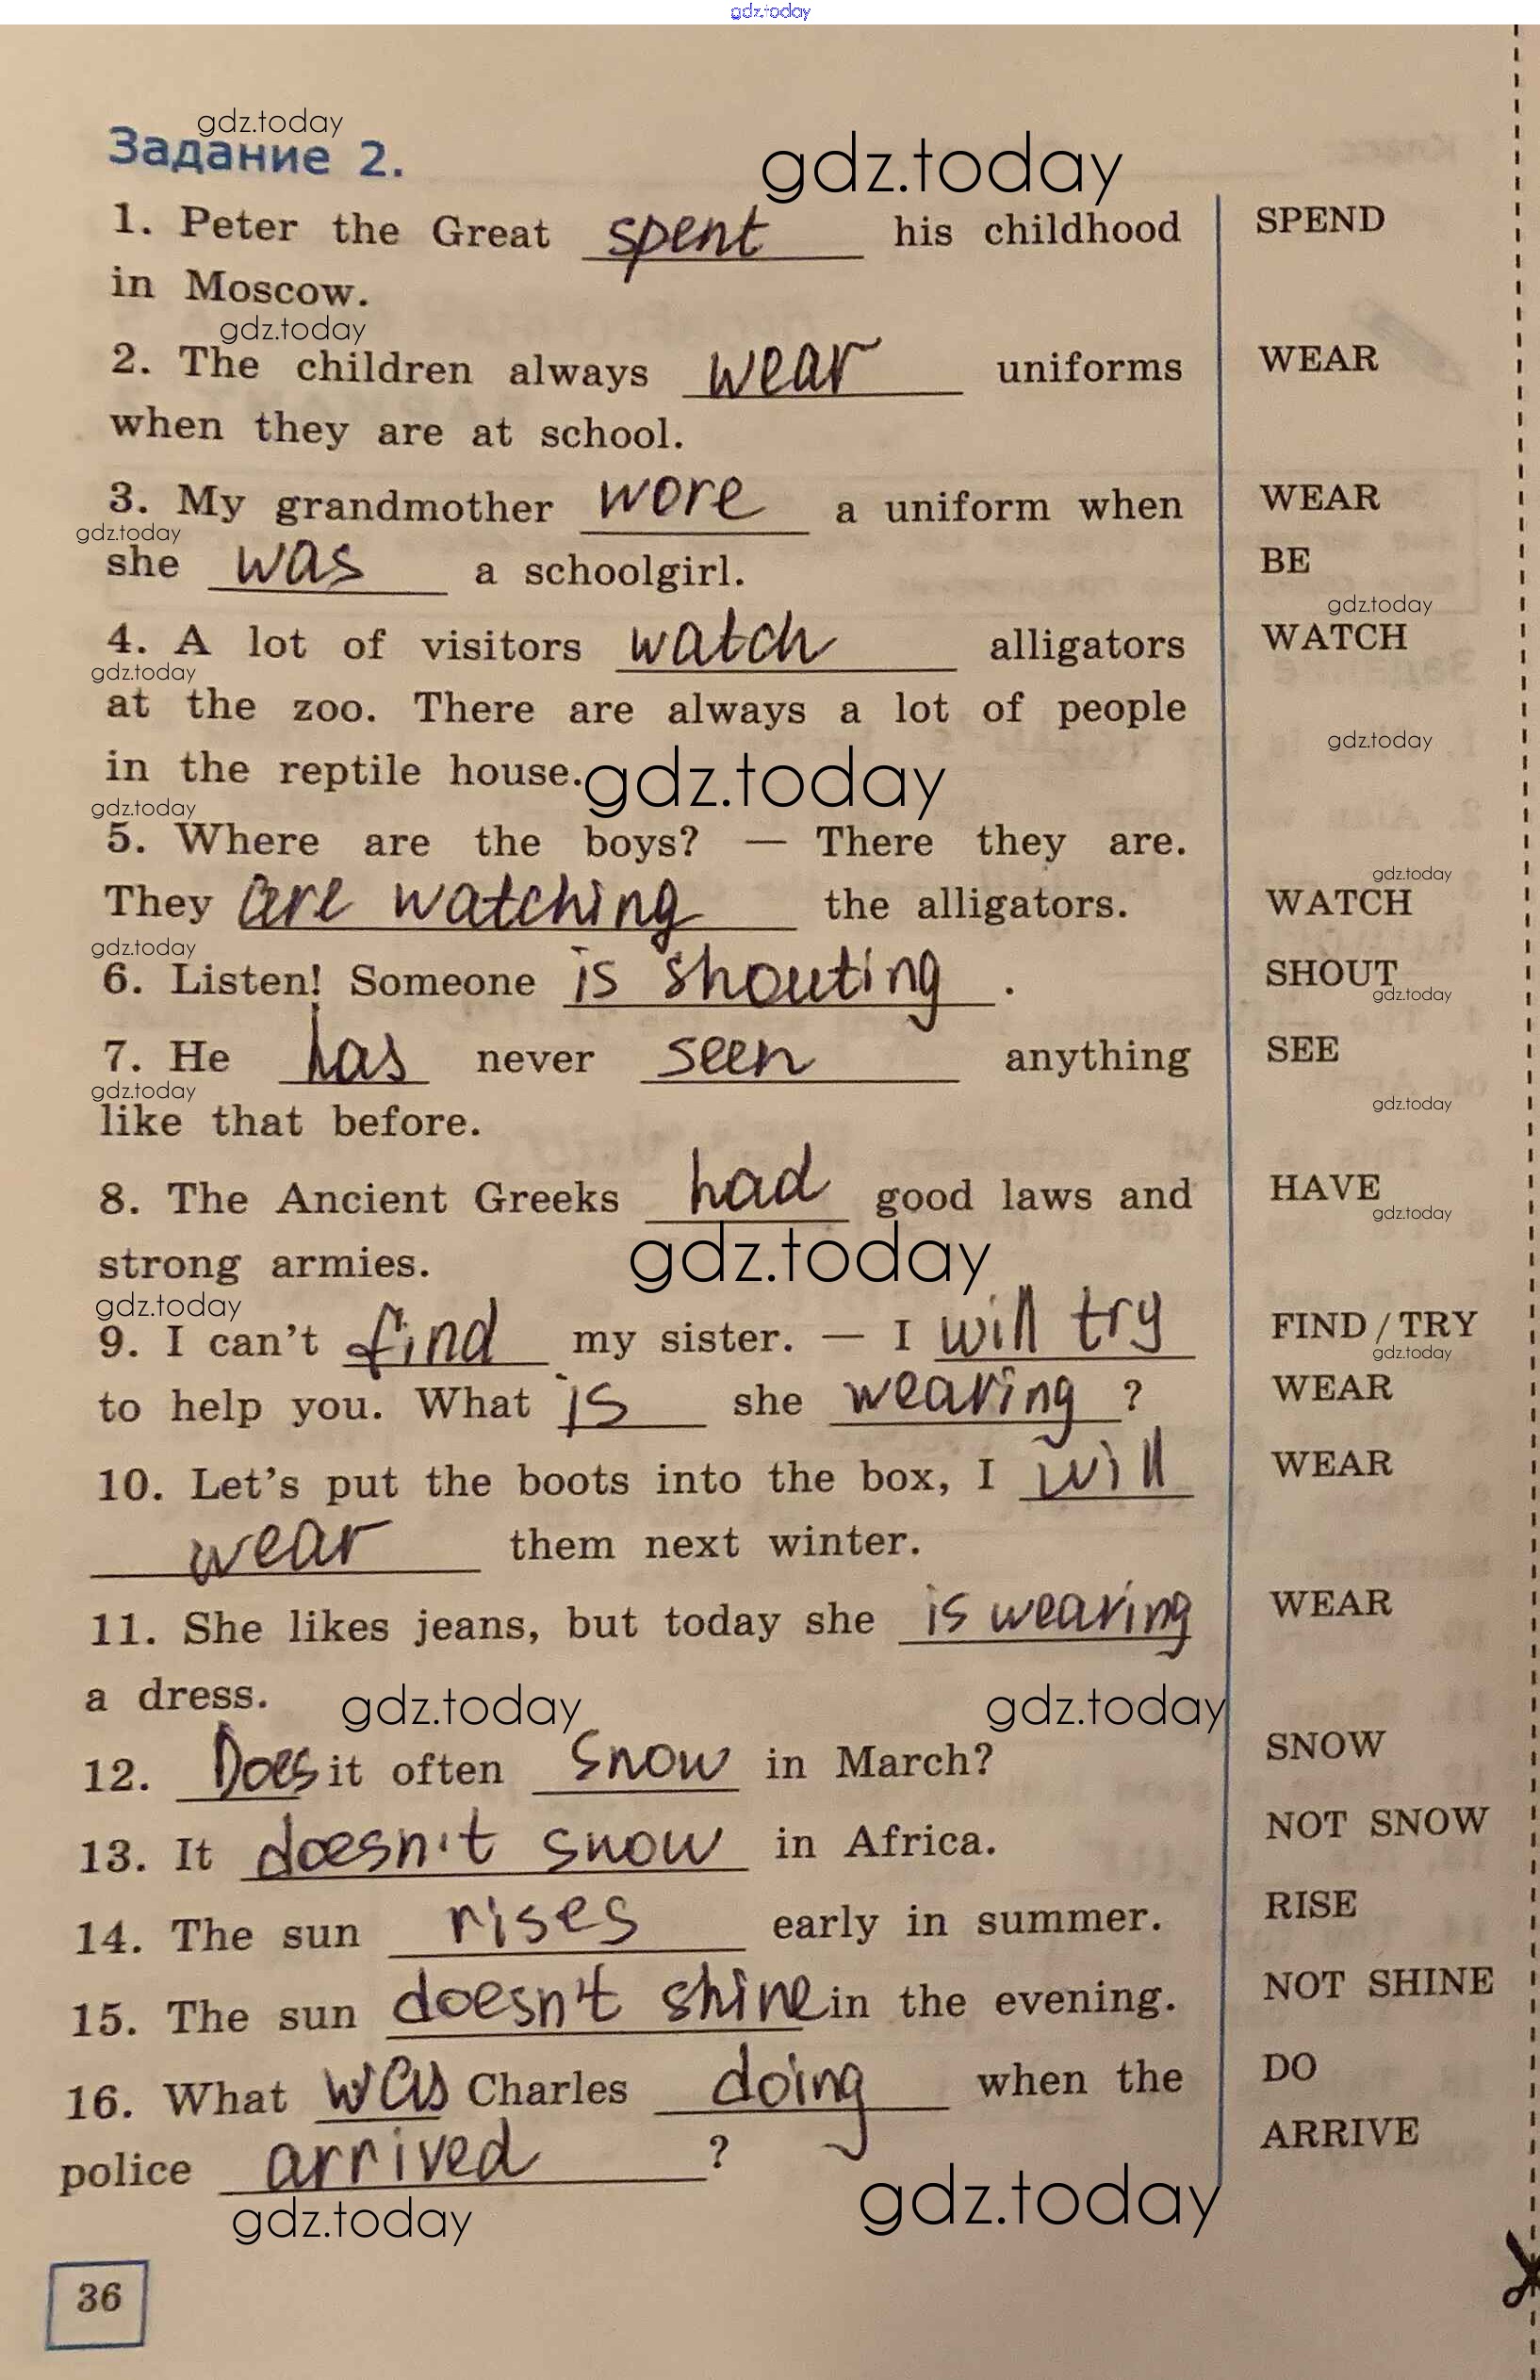 gdz.today
gdz.today
Задание 2.
gdz.today
1. Peter the Great spent his childhood SPEND
in Moscow.
gdz.today
2. The children always wear uniforms WEAR
when they are at school.
3. My grandmother wore a uniform when WEAR
gdz.today
she was a schoolgirl. BE
gdz.today
4. A lot of visitors watch alligators WATCH
gdz.today
at the zoo. There are always a lot of people
gdz.today
in the reptile house. gdz.today
gdz.today
5. Where are the boys? — There they are.
gdz.today
They are watching the alligators. WATCH
gdz.today
6. Listen! Someone is shouting . SHOUT
gdz.today
7. He has never seen anything SEE
gdz.today gdz.today
like that before.
8. The Ancient Greeks had good laws and HAVE
gdz.today
strong armies. gdz.today
gdz.today
9. I can't find my sister. — I will try FIND / TRY
gdz.today
to help you. What is she wearing ? WEAR
10. Let's put the boots into the box, I will WEAR
wear them next winter.
11. She likes jeans, but today she is wearing WEAR
a dress. gdz.today gdz.today
12. Does it often snow in March? SNOW
13. It doesn't snow in Africa. NOT SNOW
14. The sun rises early in summer. RISE
15. The sun doesn't shine in the evening. NOT SHINE
16. What was Charles doing when the DO
police arrived ? ARRIVE
gdz.today gdz.today
36